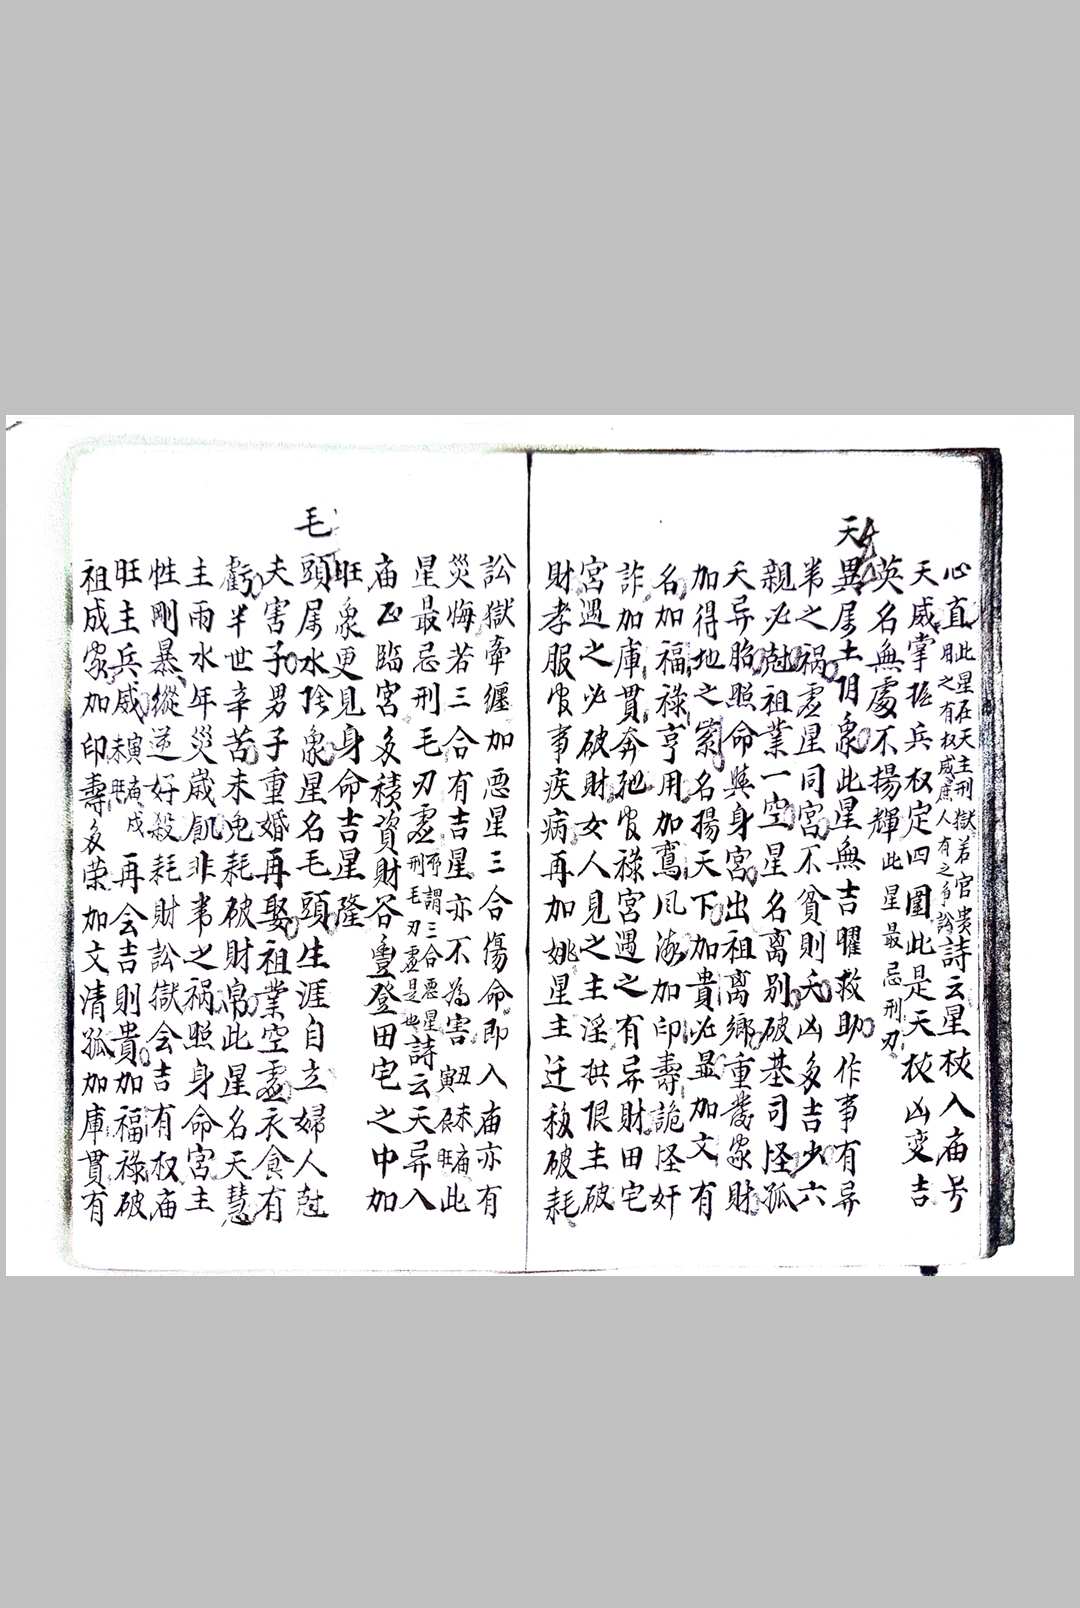 心直此星在天主刑獄若官貴用之有权威庶人有之多訟詩云星杖入庙号
天威掌握兵权定四圍此是天杖凶变吉
英名無處不揚輝此星最忌刑刃
天
異属土阴象此星無吉曜救助作事有异
常之祸虚星同宮不貧則夭凶多吉少六
親必尅祖業一空星名离别破基司怪孤
天异胎照命與身宮出祖离鄉重發家財
加得地之宮名揚天下加貴必显加文有
名加福祿亨用加鸞凤加印壽詭怪奸
詐加庫貫奔弛官祿宮遇之有异財田宅
宮遇之必破財女人見之主淫拱限主破
財孝服官事疾病再加姚星主迁移破耗
訟獄牽纏加惡星三合傷命即入庙亦有
災悔若三合有吉星亦不為害丑未庙寅辰旺此
星最忌刑毛刃虚所謂三合惡星刑毛刃虚是也詩云天异入
庙正臨宮多積資財谷豐登田宅之中加
旺象更見身命吉星隆
毛
頭属水阴象星名毛頭生涯自立婦人尅
夫害子男子重婚再娶祖業空虚衣食有
虧半世辛苦未免耗破財帛此星名天慧
主雨水年災歲飢非常之祸照身命宮主
性剛暴縱逆好殺耗財訟獄会吉有权庙
旺主兵威寅庙戌未旺再会吉則貴加福祿破
祖成家加印壽多荣加文清孤加庫貫有